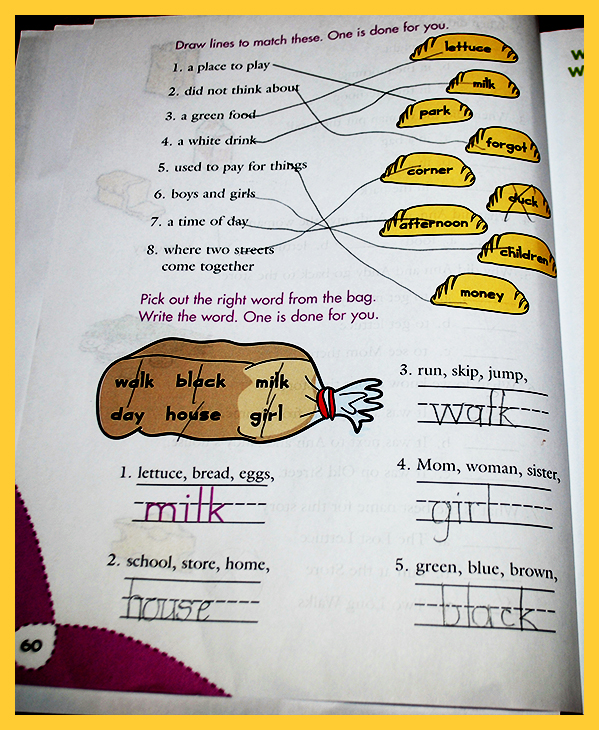 Draw lines to match these. One is done for you.
1. a place to play
2. did not think about
3. a green food
4. a white drink
5. used to pay for things
6. boys and girls
7. a time of day
8. where two streets
come together
lettuce
milk
park
forgot
corner
duck
afternoon
children
money
Pick out the right word from the bag.
Write the word. One is done for you.
walk black milk
day house girl
1. lettuce, bread, eggs,
milk
2. school, store, home,
house
3. run, skip, jump,
walk
4. Mom, woman, sister,
girl
5. green, blue, brown,
black
60